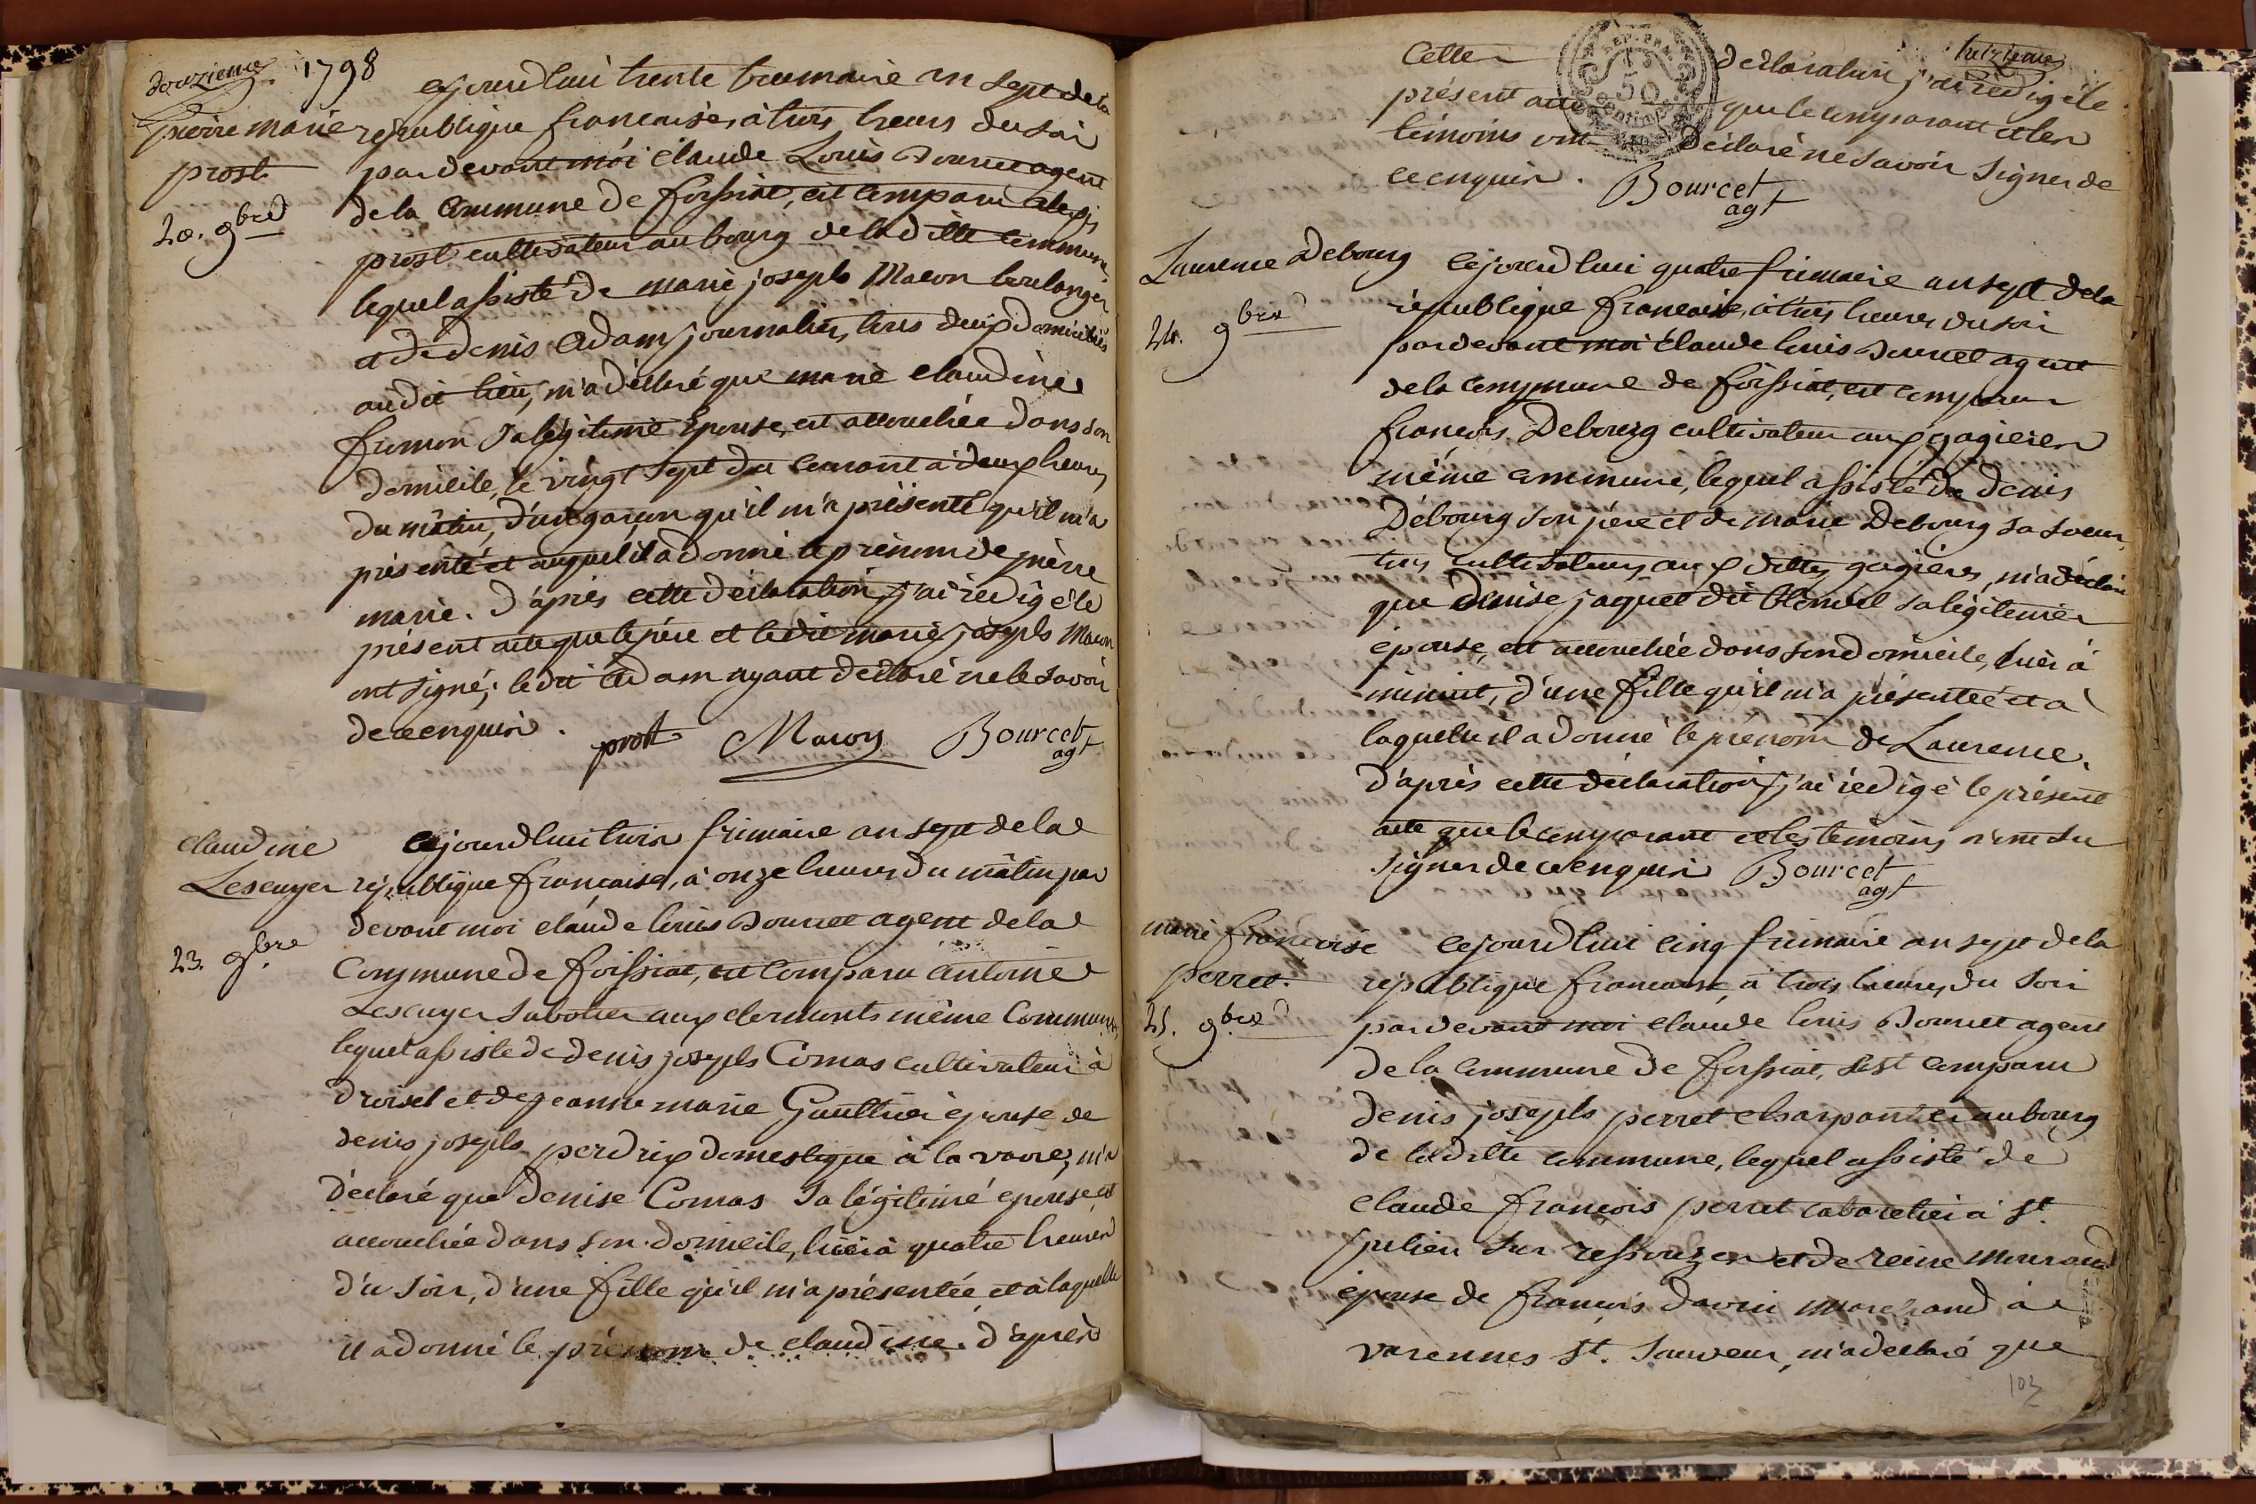 douzieme 1798
pierre marie
prost
20. 9bre
cejourdhui trente brumaire an sept de la
republique francaise, à trois heures du soir
par devant moi claude Louis Bourcet agent
de la Commune de foissiat, est comparu alexis
prost cultivateur au bourg de la ditte commune,
lequel assisté de marie joseph Macon boulanger
et de denis Adam journalier, tous deux domiciliés
audit lieu, m'a déclaré que marie claudine
fromon sa légitime épouse, est accouchée dans son
domicile, le vingt sept du courant à deux heures
du mâtin, d'un garçon qu'il m'a présenté qu'il m'a
présenté et auquel il a donné le prénom de pierre
marie. D'après cette déclaration, j'ai rédigé le
présent acte que le père et le dit marie joseph Macon
ont signé; le dit Adam ayant déclaré ne le savoir
de ce enquis.
prost Macon Bourcet
agt
claudine
Lescuyer
23. 9bre
cejourdhui trois frimaire an sept de la
république francaise, à onze heures du mâtin par
devant moi claude louis Bourcet agent de la
Commune de foissiat, est comparu antoine
Lescuyer sabotier aux clermonts même Commune,
lequel assisté de denis joseph Comas cultivateur à
droisel et de jeanne marie Gaulthier épouse de
denis joseph perdrix domestique à la vavre, m'a
déclaré que denise Comas sa légitime épouse, est
accouchée dans son domicile, hier à quatre heures
du soir, d'une fille qu'il m'a présentée et à laquelle
il a donné le prénom de claudine. d'après
treizieme
Cette déclaration j'ai rédigé le
présent acte que le comparant et les
témoins ont déclaré ne savoir signer de
ce enquis. Bourcet
agt
REP. FRA.
50
centimes
Laurence Debourg
24. 9bre
cejourdhui quatre frimaire an sept de la
république francaise, à trois heures du soir
par devant moi claude louis Bourcet agent
de la commune de foissiat, est comparu
françois Debourg cultivateur aux gagieres
même commune, lequel assisté de denis
Debourg son père et de marie Debourg sa soeur,
tous cultivateurs aux dittes gagières, m'a déclaré
que denise jaquet dit blondel sa légitime
épouse, est accouchée dans son domicile, hier à
minuit, d'une fille qu'il m'a présentée et à
laquelle il a donné le prénom de Laurence.
d'après cette déclaration j'ai rédigé le présent
acte que le comparant et les témoins n'ont su
signer de ce enquis Bourcet
agt
marie francoise
perret.
25. 9bre
cejourdhui cinq frimaire an sept de la
république francaise, à trois heures du soir
par devant moi claude louis Bourcet agent
de la commune de foissiat, s'est comparu
denis joseph perret charpentier au bourg
de la ditte commune, lequel assisté de
claude françois perret cabaretier à St.
julien sur ressouze et de reine
épouse de françois marchand à
varennes St. Sauveur, m'a déclaré que
103